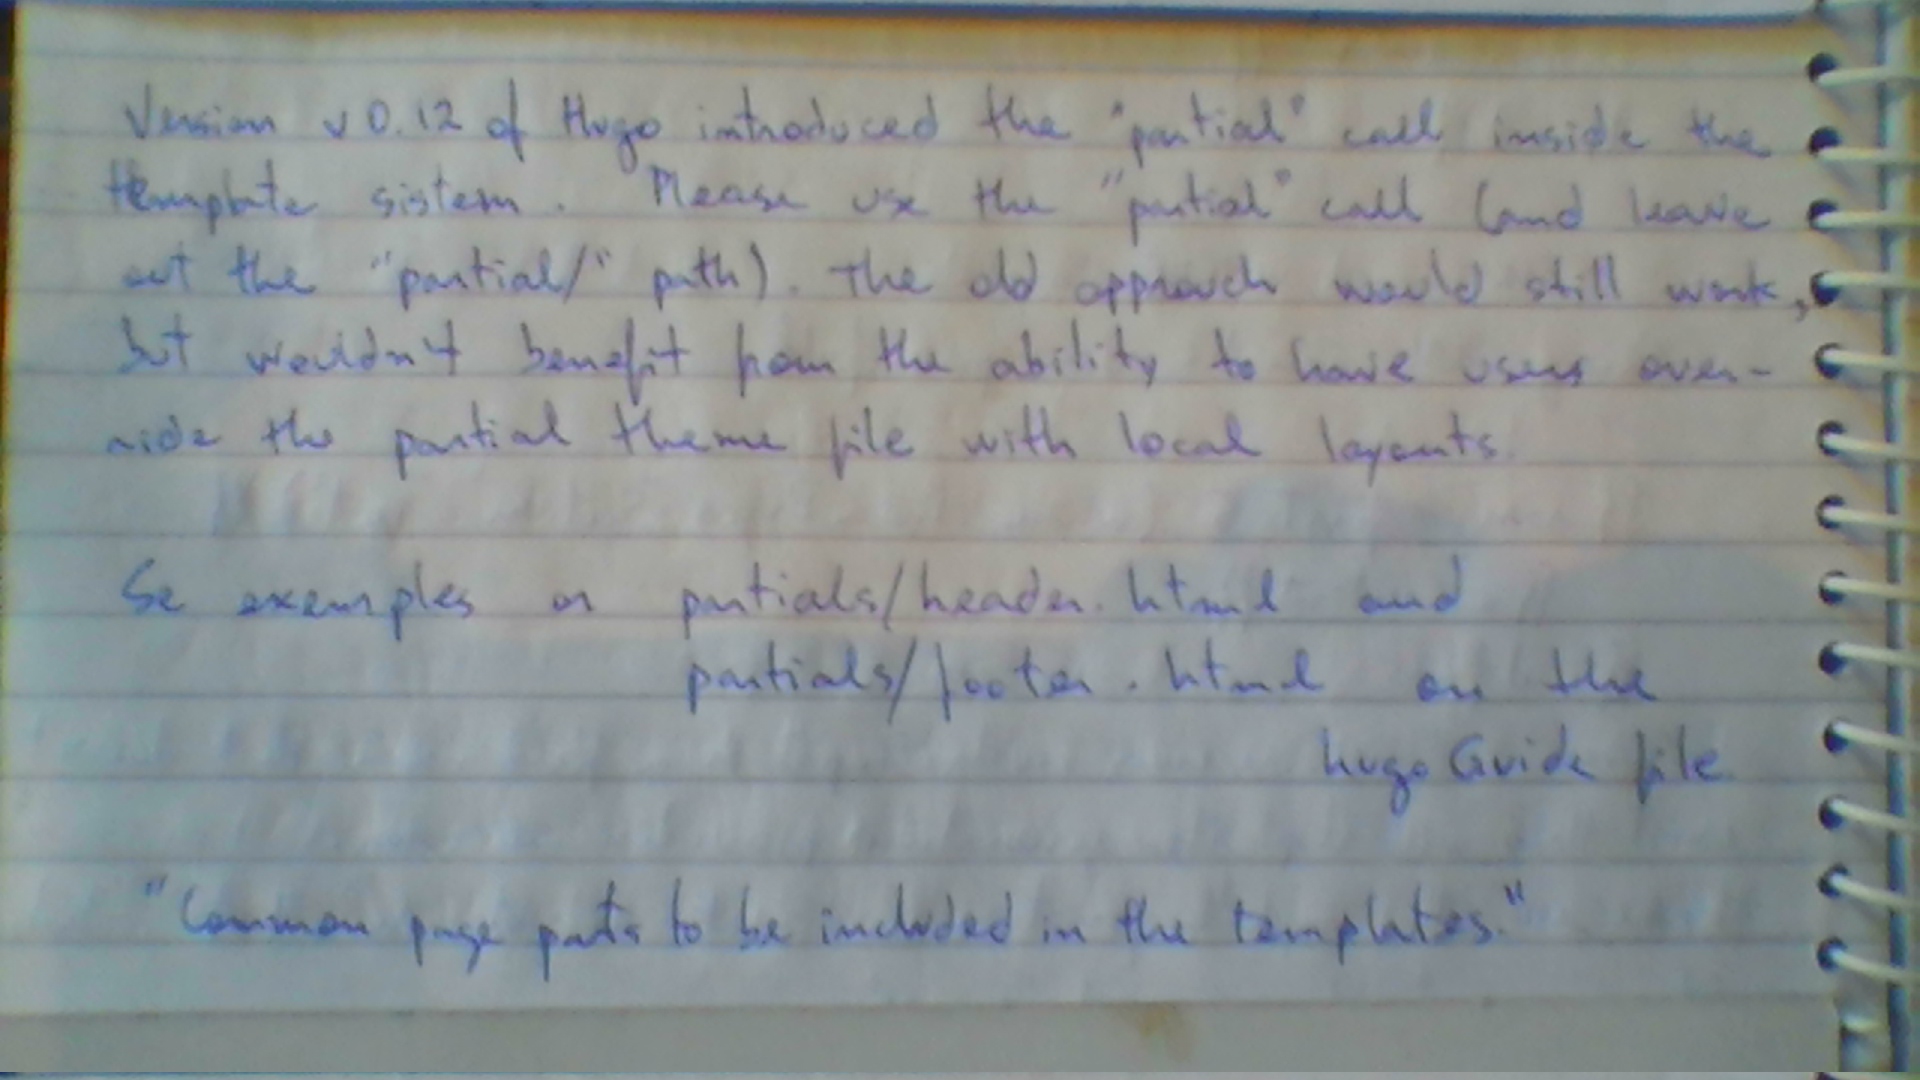 Version v0.12 of Hugo introduced the "partial" call inside the
template sistem. Please use the "partial" call (and leave
out the "partial/" path). The old approach would still work,
but wouldn't benefit from the ability to have users over-
ride the partial theme file with local layouts.
Se exemples on partials/header.html and
partials/footer.html on the
hugoGuide file
"Common page parts to be included in the templates."